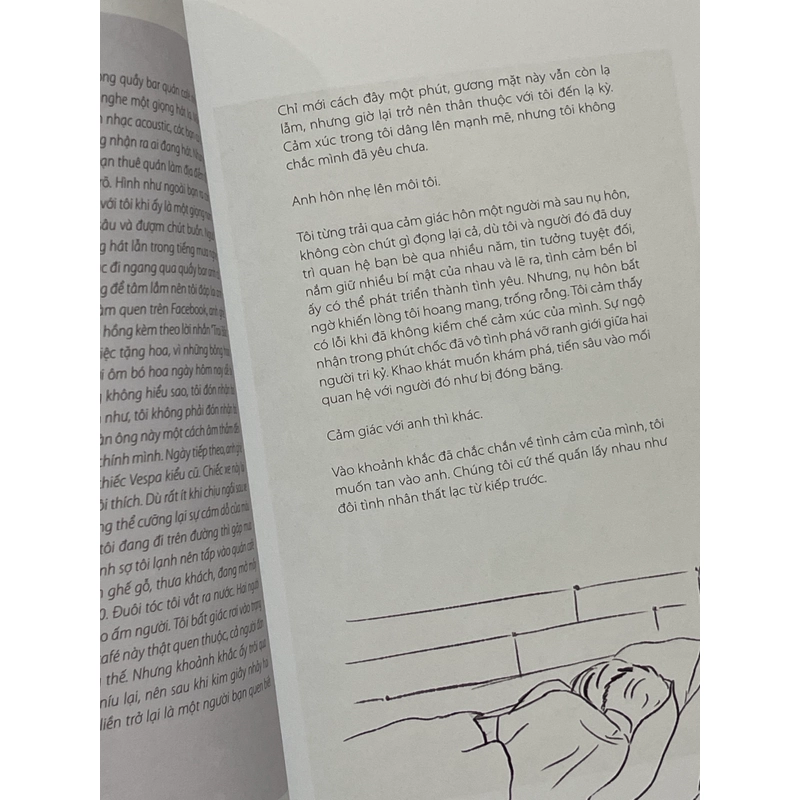 ong quầy bar quán café
nghe một giọng hát lạ
nhạc acoustic, các bạn
g nhận ra ai đang hát.
ạn thuê quán làm địa điểm
rõ. Hình như ngoài bạn ra
với tôi khi ấy là một giọng
âu và đượm chút buồn.
g hát lẫn trong tiếng mưa
c đi ngang qua quầy bar
g để tâm lắm nên tôi đáp lại
àm quen trên Facebook, anh
hồng kèm theo lời nhắn
iệc tặng hoa, vì những bông
i ôm bó hoa ngày hôm nay
không hiểu sao, tôi đón nhận
như, tôi không phải đón nhận
àn ông này một cách âm thầm
chính mình. Ngày tiếp theo, anh
hiếc Vespa kiểu cũ. Chiếc xe này
ôi thích. Dù rất ít khi chịu ngồi sau
ng thể cưỡng lại sự cám dỗ của
tôi đang đi trên đường thì gặp mưa
nh sợ tôi lạnh nên tấp vào quán café
ghế gỗ, thưa khách, đang mở
0. Đuôi tóc tôi vắt ra nước. Hai người
o ấm người. Tôi bất giác rơi vào trạng
café này thật quen thuộc, cả người đàn
thế. Nhưng khoảnh khắc ấy trôi qua
níu lại, nên sau khi kim giây nhảy
liền trở lại là một người bạn quen
Chỉ mới cách đây một phút, gương mặt này vẫn còn lạ
lẫm, nhưng giờ lại trở nên thân thuộc với tôi đến lạ kỳ.
Cảm xúc trong tôi dâng lên mạnh mẽ, nhưng tôi không
chắc mình đã yêu chưa.
Anh hôn nhẹ lên môi tôi.
Tôi từng trải qua cảm giác hôn một người mà sau nụ hôn,
không còn chút gì đọng lại cả, dù tôi và người đó đã duy
trì quan hệ bạn bè qua nhiều năm, tin tưởng tuyệt đối,
nắm giữ nhiều bí mật của nhau và lẽ ra, tình cảm bền bỉ
ấy có thể phát triển thành tình yêu. Nhưng, nụ hôn bất
ngờ khiến lòng tôi hoang mang, trống rỗng. Tôi cảm thấy
có lỗi khi đã không kiềm chế cảm xúc của mình. Sự ngộ
nhận trong phút chốc đã vô tình phá vỡ ranh giới giữa hai
người tri kỷ. Khao khát muốn khám phá, tiến sâu vào mối
quan hệ với người đó như bị đóng băng.
Cảm giác với anh thì khác.
Vào khoảnh khắc đã chắc chắn về tình cảm của mình, tôi
muốn tan vào anh. Chúng tôi cứ thế quấn lấy nhau như
đôi tình nhân thất lạc từ kiếp trước.